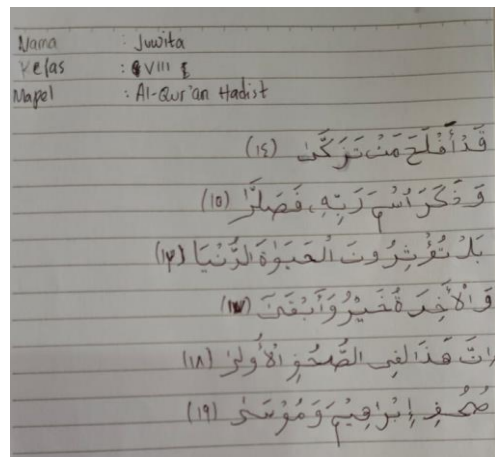 Nama : Juwita
Kelas : VIII
Mapel : Al-Qur'an Hadist
قَدْ أَفْلَحَ مَنْ تَزَكَّىٰ (١٤)
وَذَكَرَ اسْمَ رَبِّهِ، فَصَلَّىٰ (١٥)
بَلْ تُؤْثِرُونَ الْحَيَوٰةَ الدُّنْيَا (١٦)
وَالْأَخِرَةُ خَيْرٌ وَأَبْقَىٰ (١٧)
اِنَّ هَذَا لَفِى الصُّحُفِ الْأُولَىٰ (١٨)
صُحُفِ إِبْرَاهِيمَ وَمُوْسَىٰ (١٩)